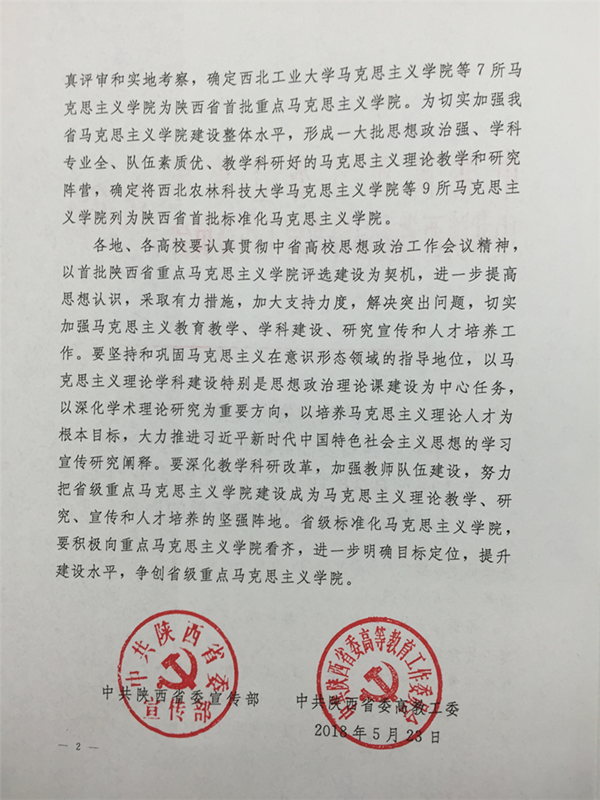 真评审和实地考察，确定西北工业大学马克思主义学院等7所马
克思主义学院为陕西省首批重点马克思主义学院。为切实加强我
省马克思主义学院建设整体水平，形成一大批思想政治强、学科
专业全、队伍素质优、教学科研好的马克思主义理论教学和研究
阵营，确定将西北农林科技大学马克思主义学院等9所马克思主
义学院列为陕西省首批标准化马克思主义学院。
各地、各高校要认真贯彻中省高校思想政治工作会议精神，
以首批陕西省重点马克思主义学院评选建设为契机，进一步提高
思想认识，采取有力措施，加大支持力度，解决突出问题，切实
加强马克思主义教育教学、学科建设、研究宣传和人才培养工
作。要坚持和巩固马克思主义在意识形态领域的指导地位，以马
克思主义理论学科建设特别是思想政治理论课建设为中心任务，
以深化学术理论研究为重要方向，以培养马克思主义理论人才为
根本目标，大力推进习近平新时代中国特色社会主义思想的学习
宣传研究阐释。要深化教学科研改革，加强教师队伍建设，努力
把省级重点马克思主义学院建设成为马克思主义理论教学、研
究、宣传和人才培养的坚强阵地。省级标准化马克思主义学院，
要积极向重点马克思主义学院看齐，进一步明确目标定位，提升
建设水平，争创省级重点马克思主义学院。
中共陕西省委
宣传部
中共陕西省委高等教育工作委员会
中共陕西省委宣传部
中共陕西省委高教工委
2018年5月23日
— 2 —